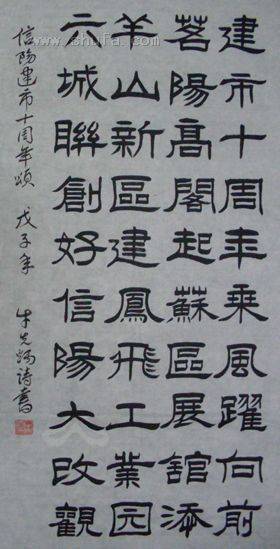 建市十周年乘風躍向前
茗陽髙閣起蘇區展舘添
羊山新區建鳳飛工業园
六城聯創好信陽大改觀
信陽建市十周年頌 戊子年 牛 詩書